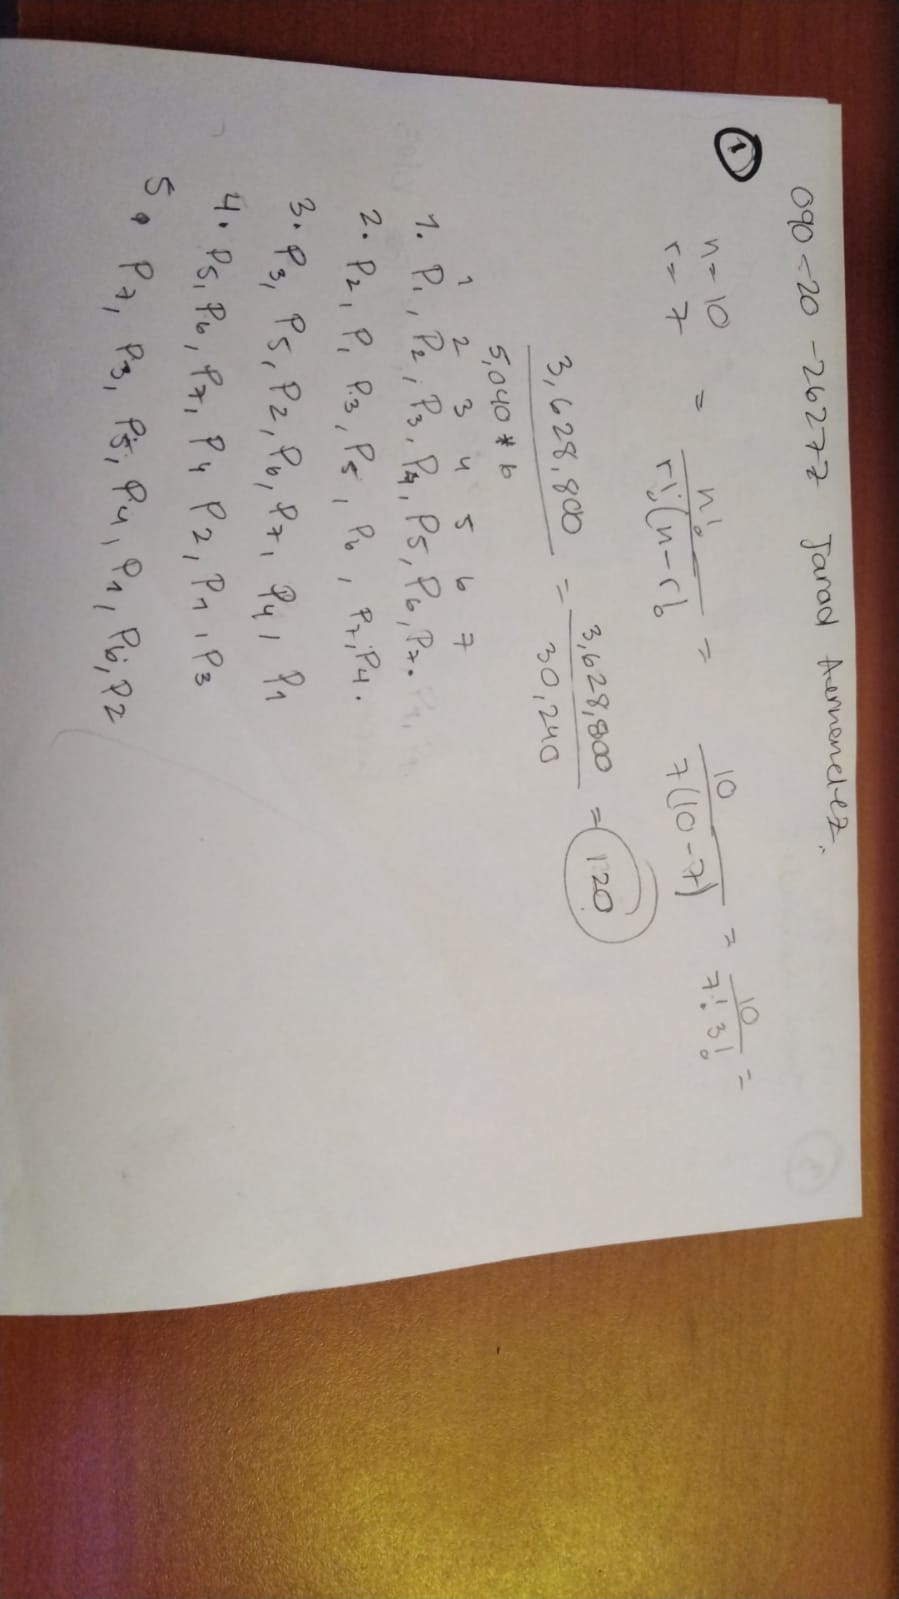 090-20-26277 Jarod Hernandez.
①
n=10
r=7
= n! / r!(n-r! = 10 / 7(10-7) = 10 / 7! 3! =
3,628,800 / 5,040*6 = 3,628,800 / 30,240 = 120
1 2 3 4 5 6 7
1. P1, P2, P3, P4, P5, P6, P7.
2. P2, P1 P3, P5, P6, P7, P4.
3. P3, P5, P2, P6, P7, P4, P1
4. P5, P6, P7, P4 P2, P1, P3
5. P7, P3, P5, P4, P1, P6, P2